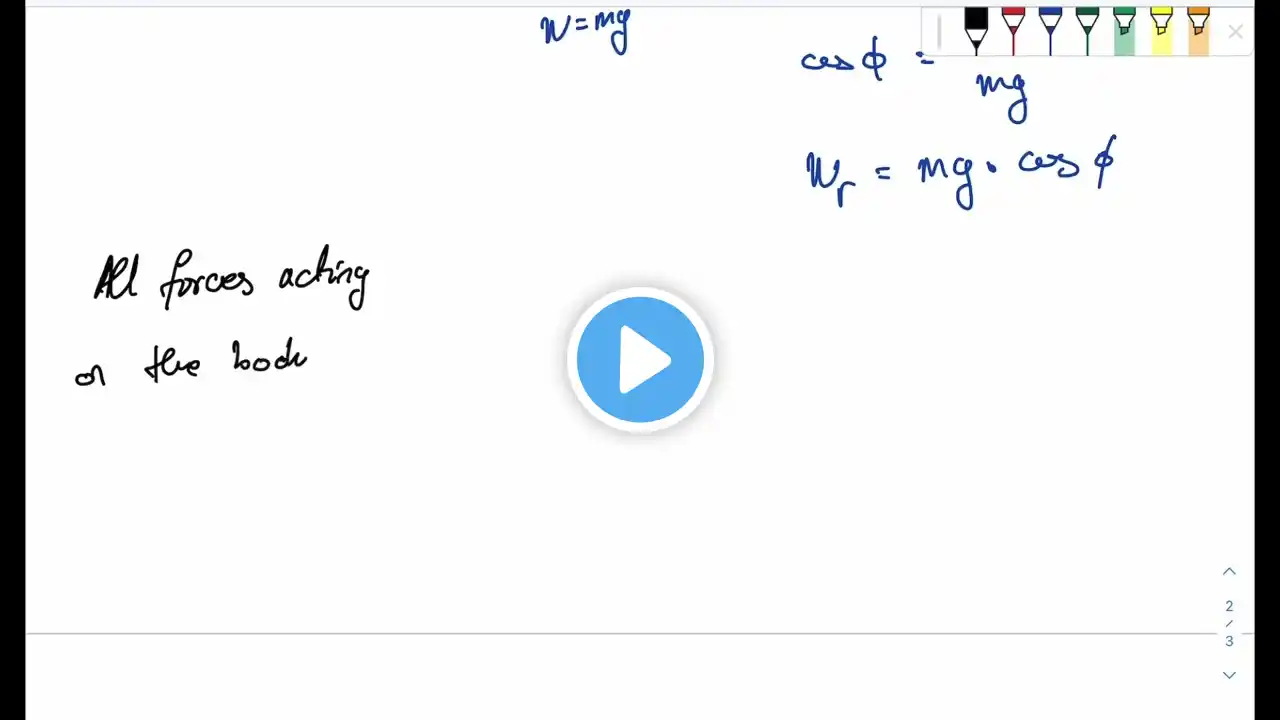 W = mg
cos ϕ =
mg
W_r = mg · cos ϕ
All forces acting
on the bod
2
/
3